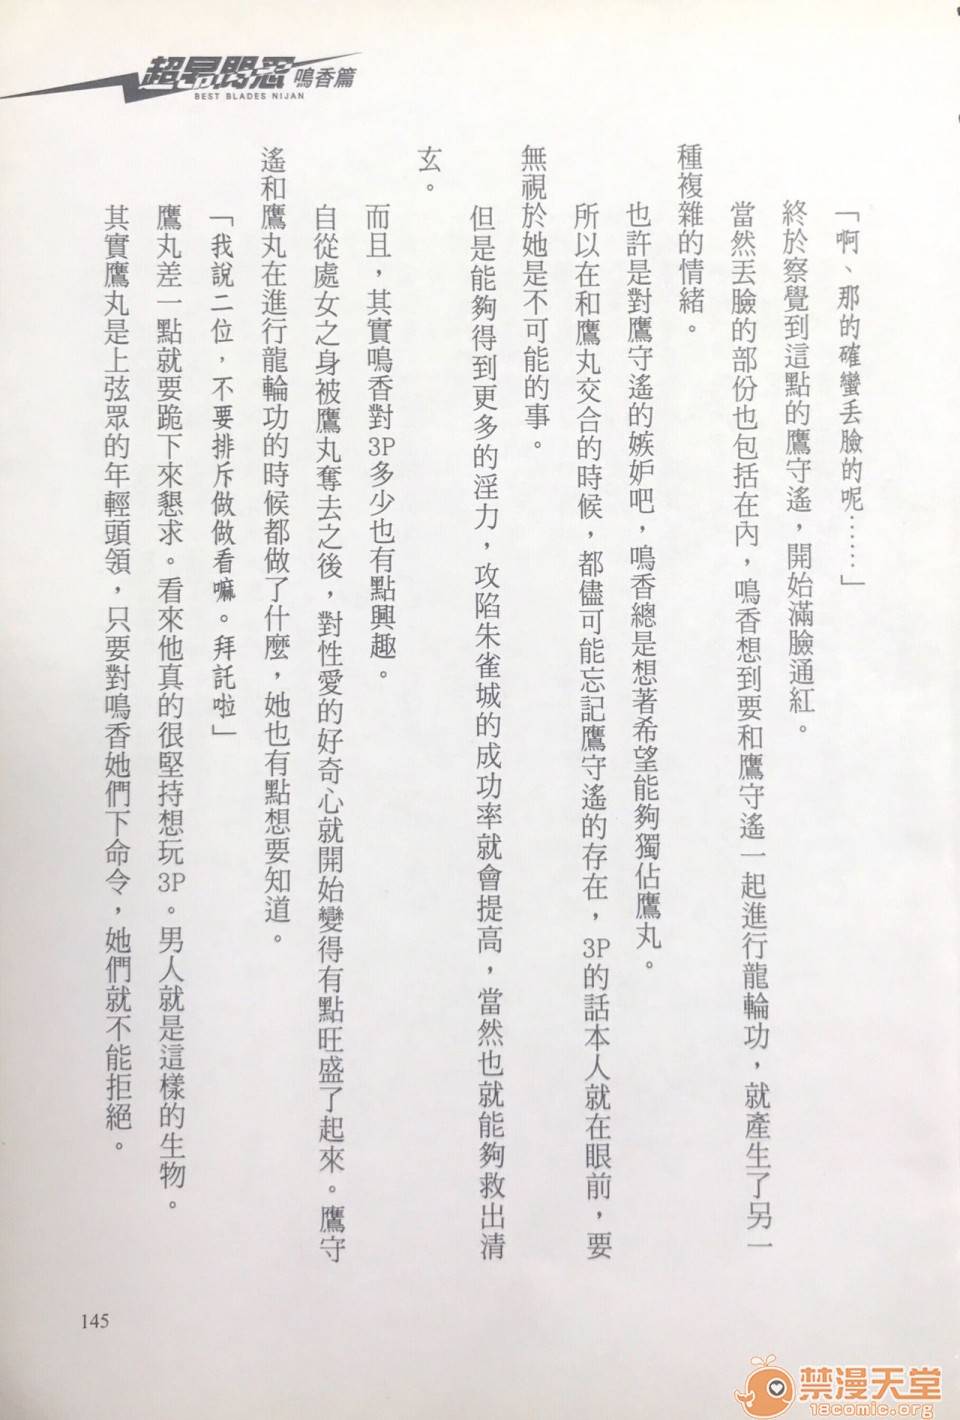 超昂閃忍 鳴香篇
BEST BLADES NIJAN
「啊、那的確蠻丟臉的呢……」
終於察覺到這點的鷹守遙，開始滿臉通紅。
當然丟臉的部份也包括在內，鳴香想到要和鷹守遙一起進行龍輪功，就產生了另一
種複雜的情緒。
也許是對鷹守遙的嫉妒吧，鳴香總是想著希望能夠獨佔鷹丸。
所以在和鷹丸交合的時候，都儘可能忘記鷹守遙的存在，3P的話本人就在眼前，要
無視於她是不可能的事。
但是能夠得到更多的淫力，攻陷朱雀城的成功率就會提高，當然也就能夠救出清
玄。
而且，其實鳴香對3P多少也有點興趣。
自從處女之身被鷹丸奪去之後，對性愛的好奇心就開始變得有點旺盛了起來。鷹守
遙和鷹丸在進行龍輪功的時候都做了什麼，她也有點想要知道。
「我說二位，不要排斥做做看嘛。拜託啦」
鷹丸差一點就要跪下來懇求。看來他真的很堅持想玩3P。男人就是這樣的生物。
其實鷹丸是上弦眾的年輕頭領，只要對鳴香她們下命令，她們就不能拒絕。
145
禁漫天堂
18comic.org